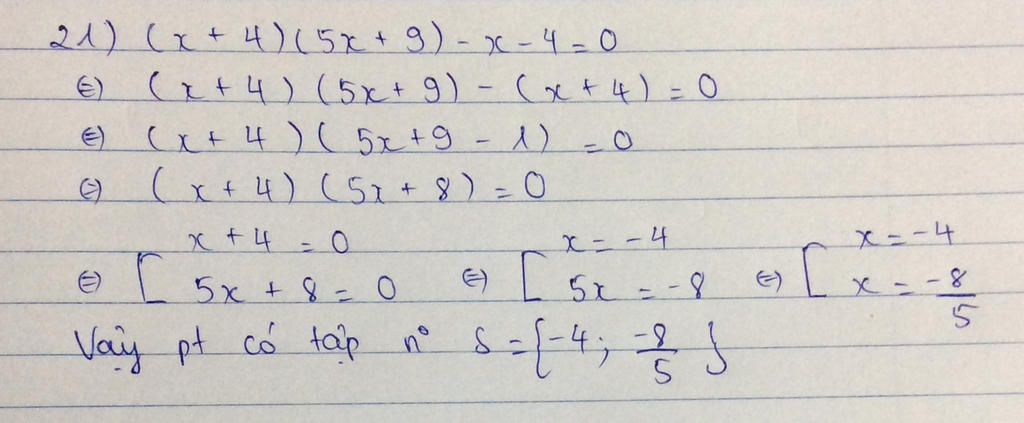 21) (x + 4)(5x + 9) - x - 4 = 0
⇔ (x + 4)(5x + 9) - (x + 4) = 0
⇔ (x + 4)(5x + 9 - 1) = 0
⇔ (x + 4)(5x + 8) = 0
⇔ [ x + 4 = 0 ; 5x + 8 = 0 ⇔ [ x = -4 ; 5x = -8 ⇔ [ x = -4 ; x = -8/5
Vậy pt có tập n° S = {-4; -8/5}